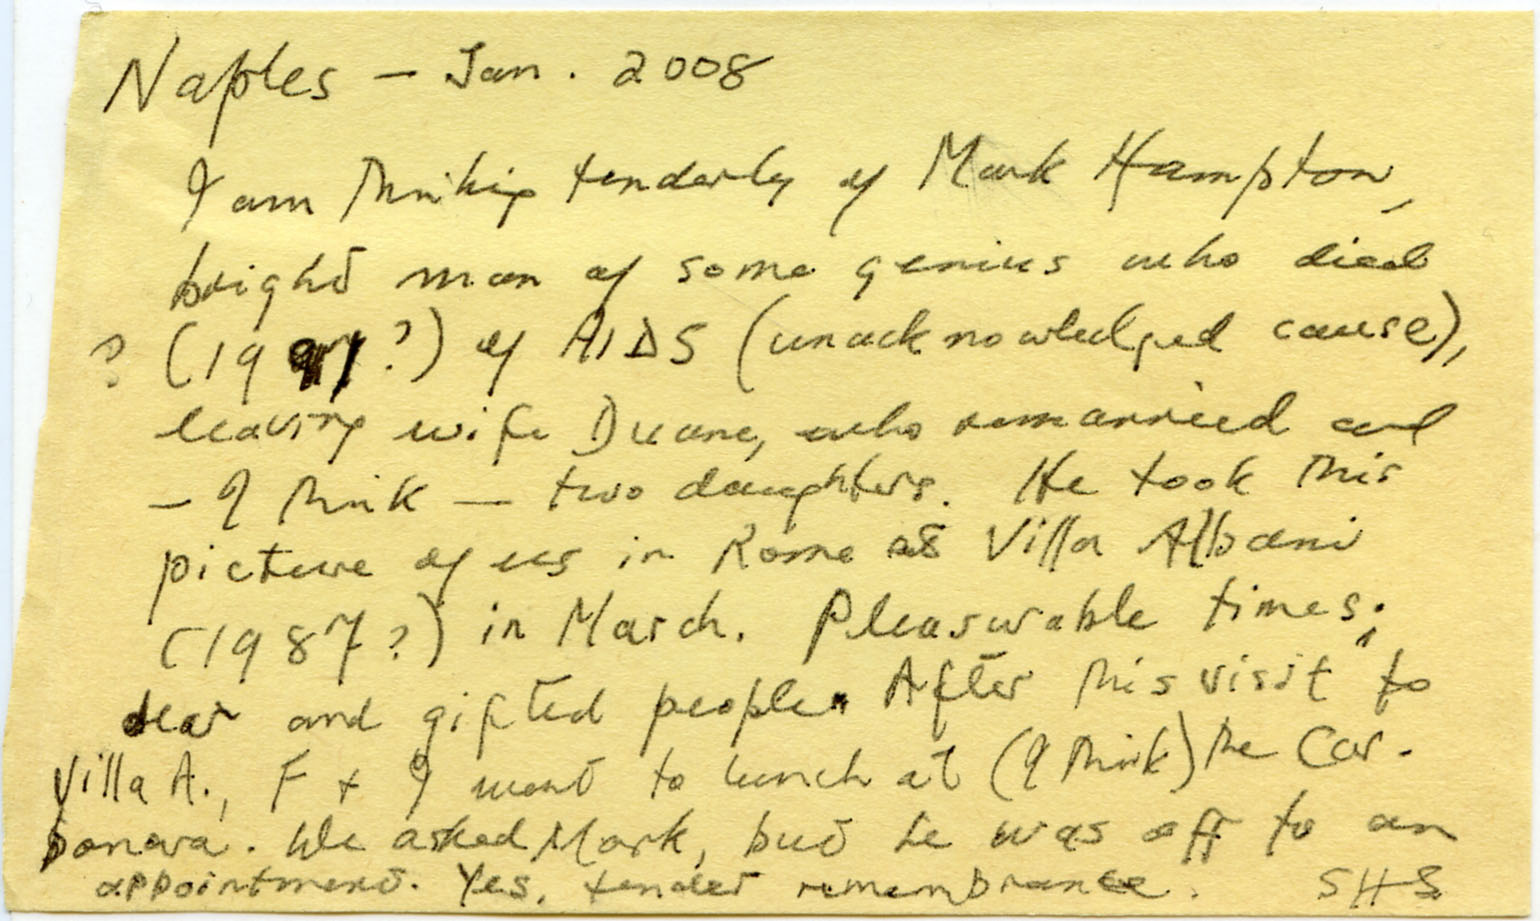 Naples – Jan. 2008
I am thinking tenderly of Mark Hampton,
bright man of some genius who died
? (1997?) of AIDS (unacknowledged cause),
leaving wife Duane, who remarried and
– I think – two daughters. He took this
picture of us in Rome at Villa Albani
(1987?) in March. Pleasurable times;
dear and gifted people. After this visit to
Villa A., F + I went to lunch at (I think) the Car-
bonara. We asked Mark, but he was off to an
appointment. Yes, tender remembrance. SHS